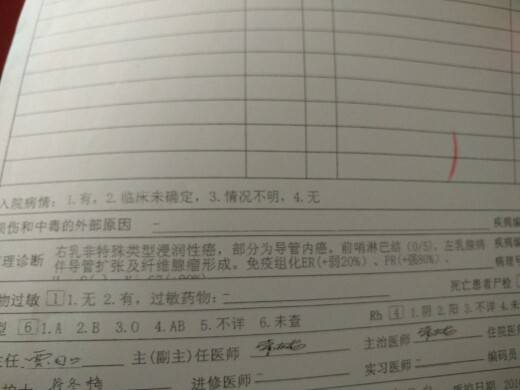 入院病情： 1.有，2.临床未确定，3.情况不明，4.无
损伤和中毒的外部原因 - 疾病编
理诊断 右乳非特殊类型浸润性癌，部分为导管内癌，前哨淋巴结（0/5）。左乳腺病 疾病编
伴导管扩张及纤维腺瘤形成。免疫组化ER(+弱20%)、PR(+强80%)、 病理号
物过敏 1 1.无 2.有，过敏药物： - 死亡患者尸检
型 6 1.A 2.B 3.O 4.AB 5.不详 6.未查 Rh 4 1.阴 2.阳 3.不详 4.未
任 主(副主)任医师 主治医师 住院医
护士 进修医师 - 实习医师 - 编码员
质控日期